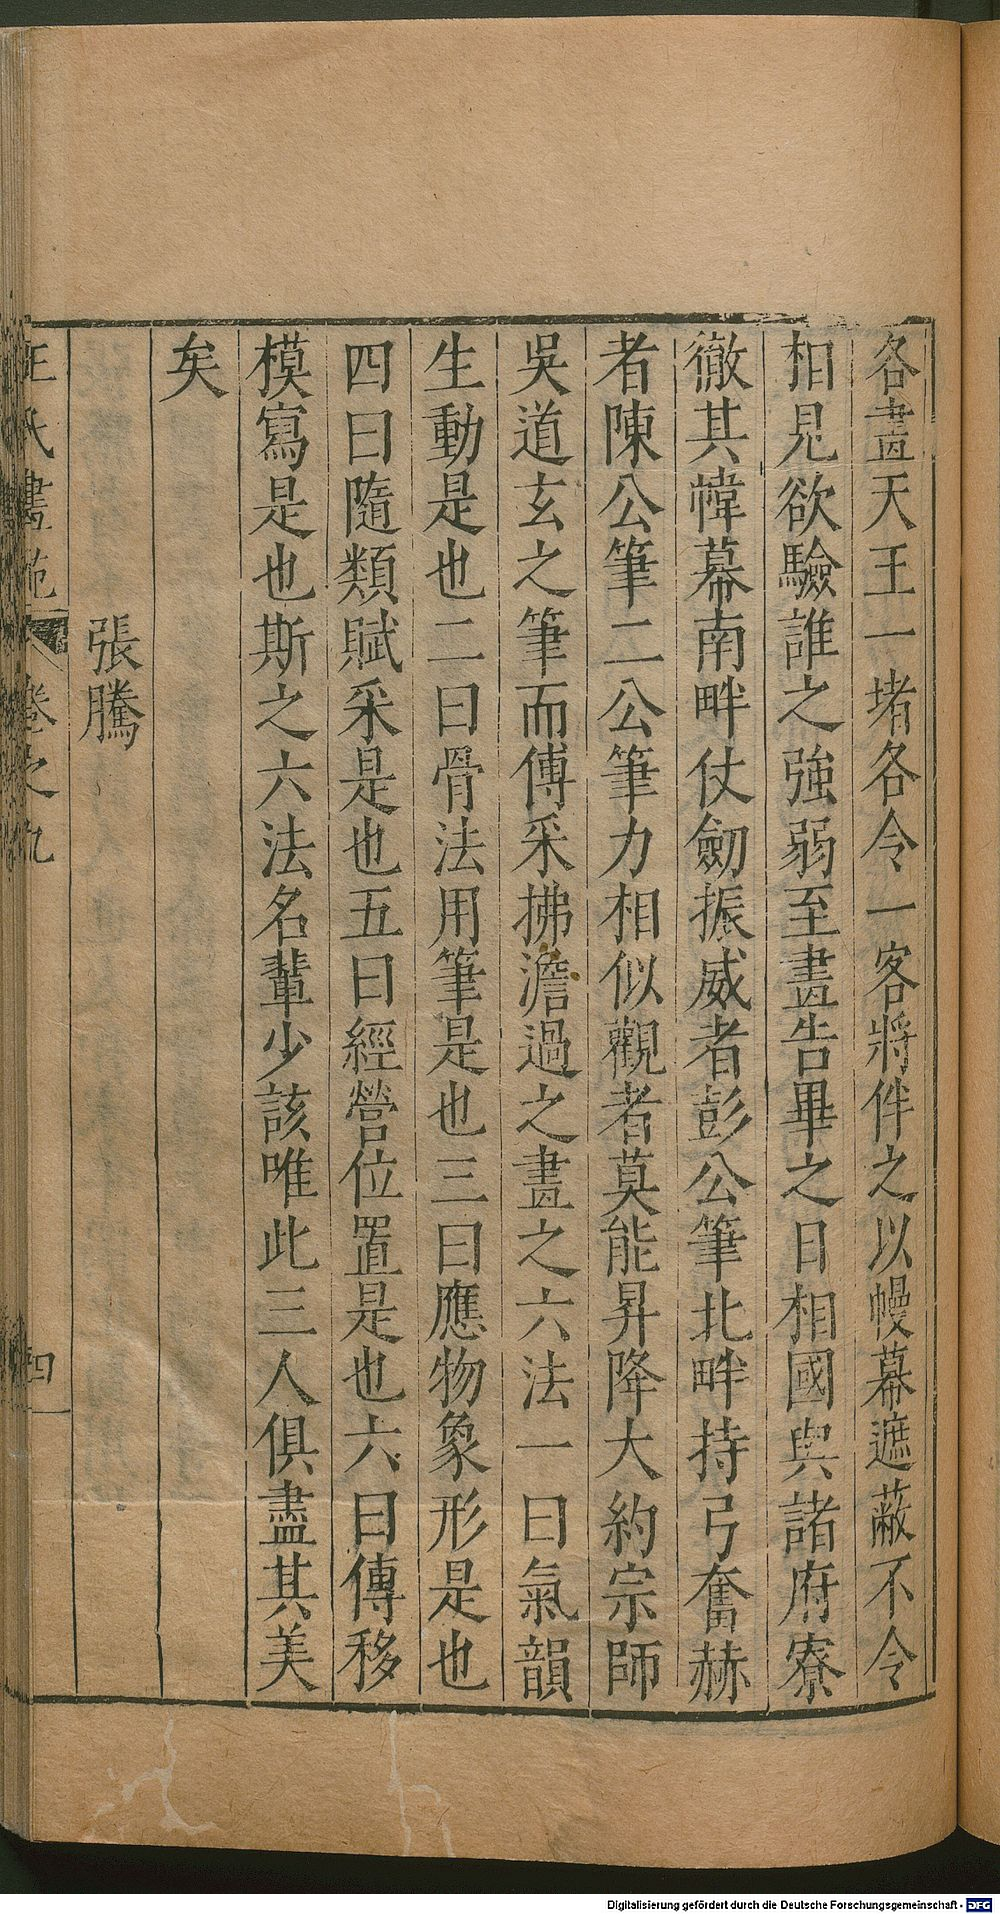 各畫天王一堵各令一客將伴之以幔幕遮蔽不令
相見欲驗誰之強弱至畫告畢之日相國與諸府寮
徹其幃幕南畔仗劒振威者彭公筆北畔持弓奮赫
者陳公筆二公筆力相似觀者莫能昇降大約宗師
吳道玄之筆而傅采拂澹過之畫之六法一曰氣韻
生動是也二曰骨法用筆是也三曰應物象形是也
四曰隨類賦采是也五曰經營位置是也六曰傳移
模寫是也斯之六法名輩少該唯此三人俱盡其美
矣
張騰
王氏畫苑 卷之九 四
Digitalisierung gefördert durch die Deutsche Forschungsgemeinschaft - DFG